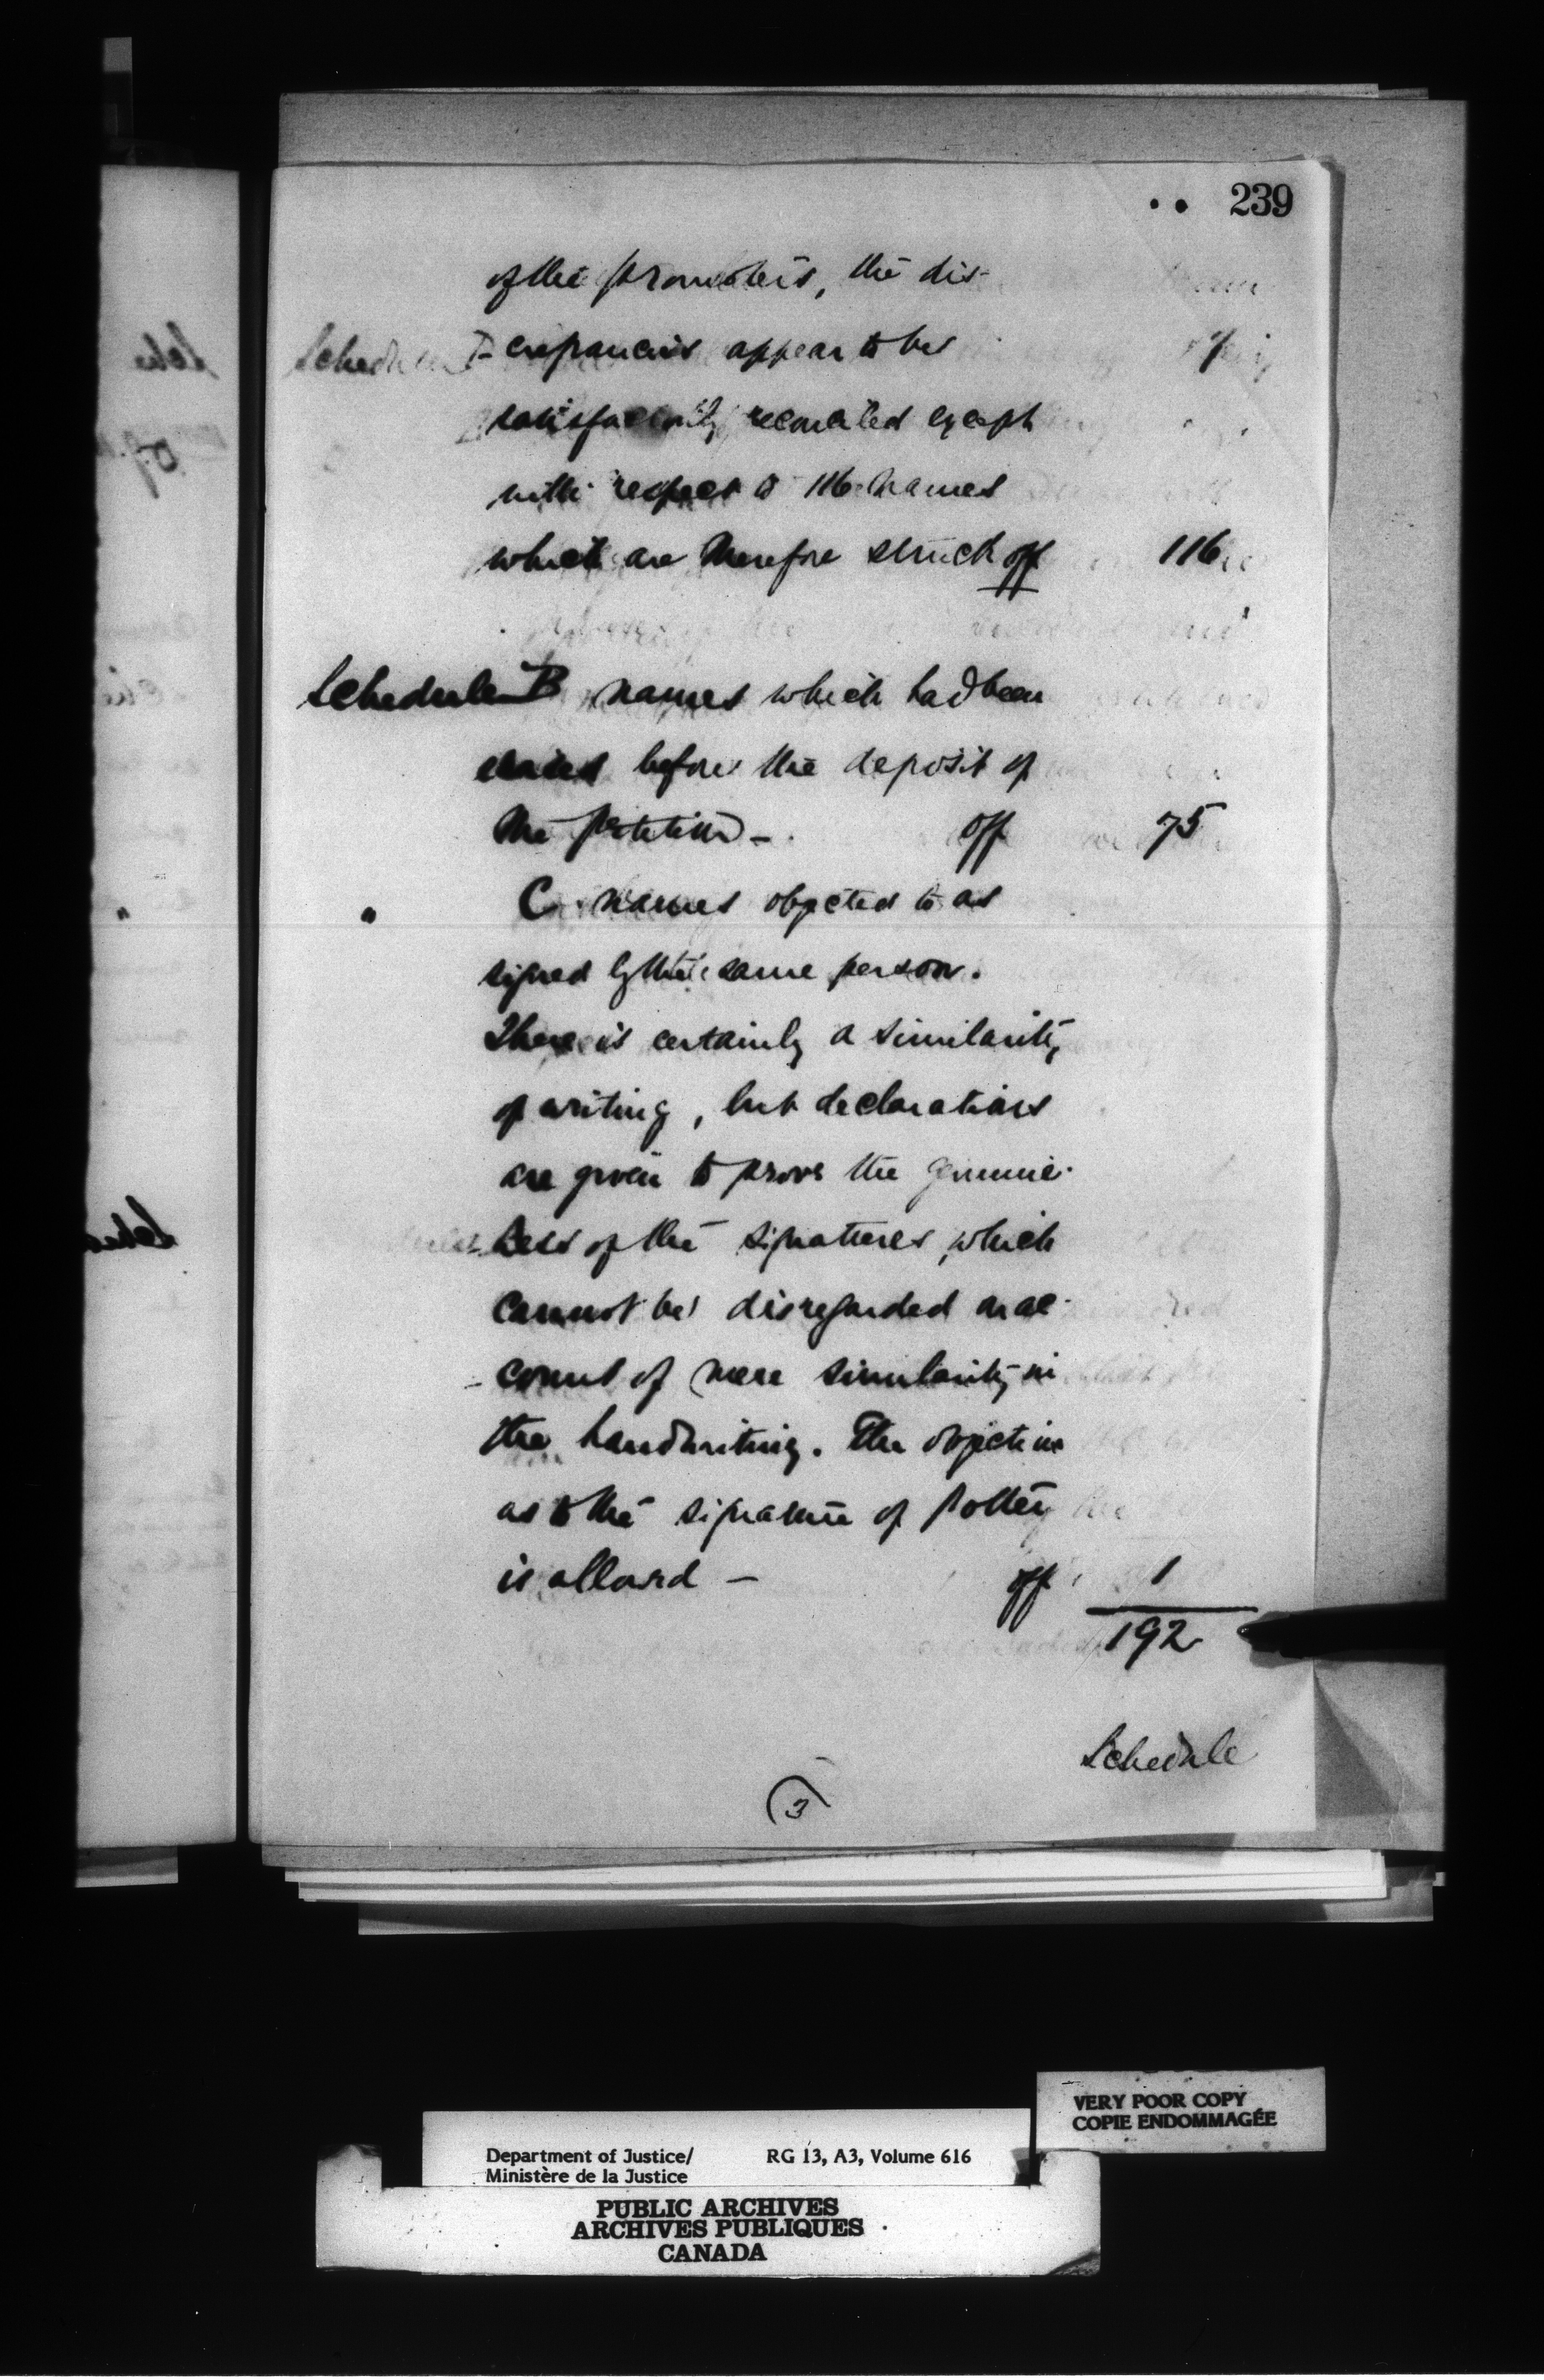 239
of the promoters, the dis-
-crepancies appear to be
satisfactorily reconciled except
with respect to 116 names
which are therefore struck off 116
Schedule B names which had been
before the deposit of
the petition - off 75
" C names objected to as
signed by the same person.
There is certainly a similarity
of writing, but declarations
are given to prove the genuine-
ness of the signatures, which
cannot be disregarded on ac-
-count of mere similarity in
the handwriting. The objection
as to the signature of
is allowed - off 1
192
Schedule
3
VERY POOR COPY
COPIE ENDOMMAGÉE
Department of Justice/ RG 13, A3, Volume 616
Ministère de la Justice
PUBLIC ARCHIVES
ARCHIVES PUBLIQUES
CANADA